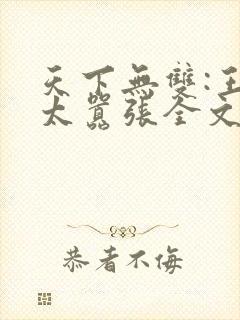 天下無雙:王
太囂張全文
恭者不侮